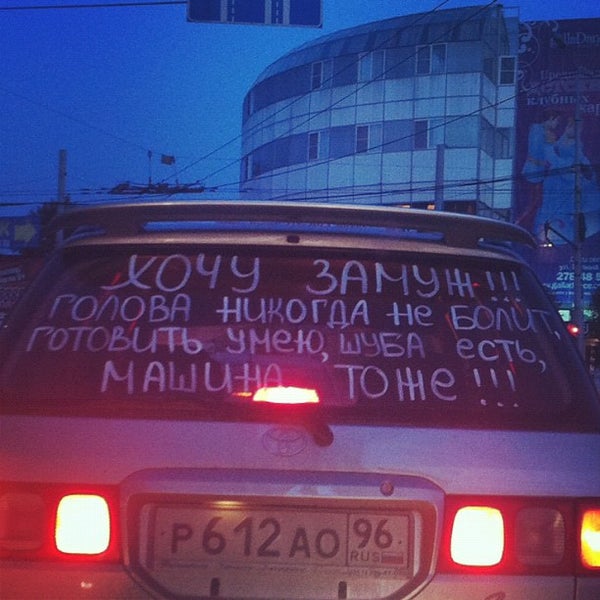 ХОЧУ ЗАМУЖ!!!
ГОЛОВА НИКОГДА НЕ БОЛИТ,
ГОТОВИТЬ УМЕЮ, ШУБА ЕСТЬ,
МАШИНА ТОЖЕ!!!
Р612АО 96
RUS
клубных